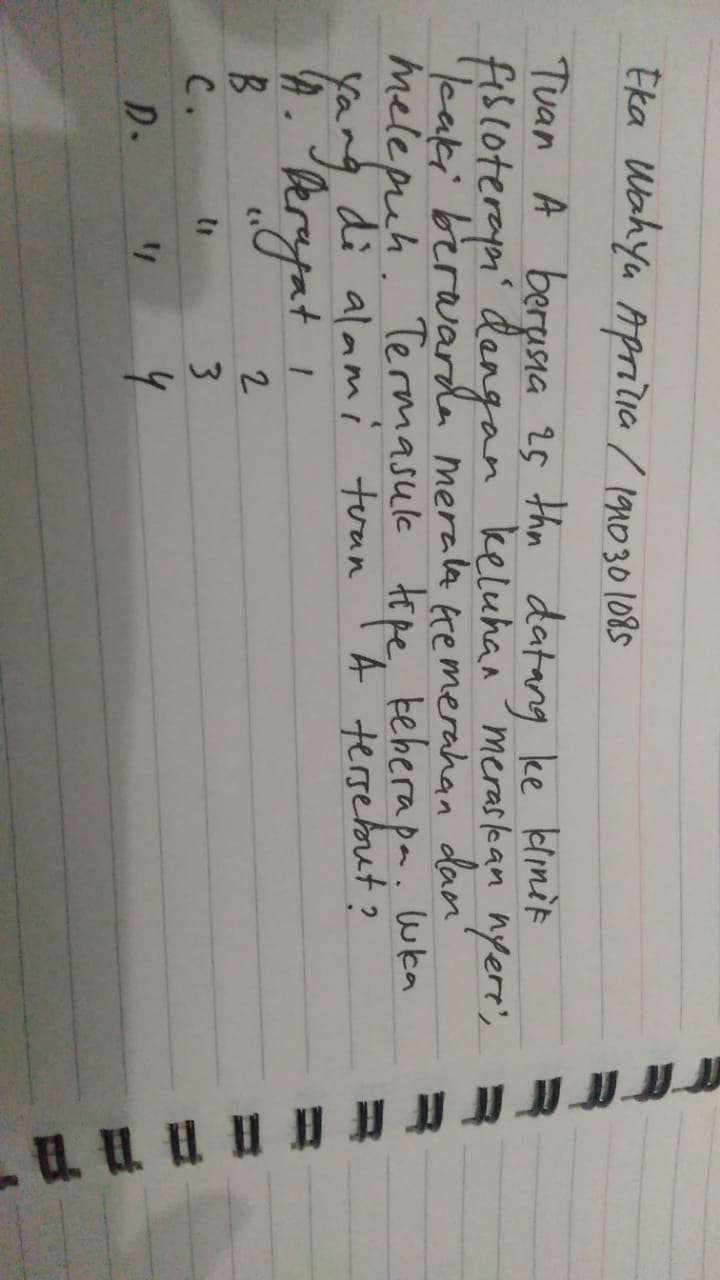 Eka Wahyu Aprilia / 1910301085
Tuan A berusia 25 thn datang ke klinik
fisioterapi dengan keluhan meraskan nyeri,
kaki berwarda merah kemerahan dan
melepuh. Termasuk tipe keberapa. luka
yang di alami tuan A tersebut?
A. Derajat 1
B " 2
C. " 3
D. " 4